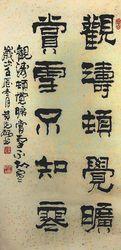 觀濤頓覺曠
賞雪不知寒
觀濤頓覺曠賞雪不知寒